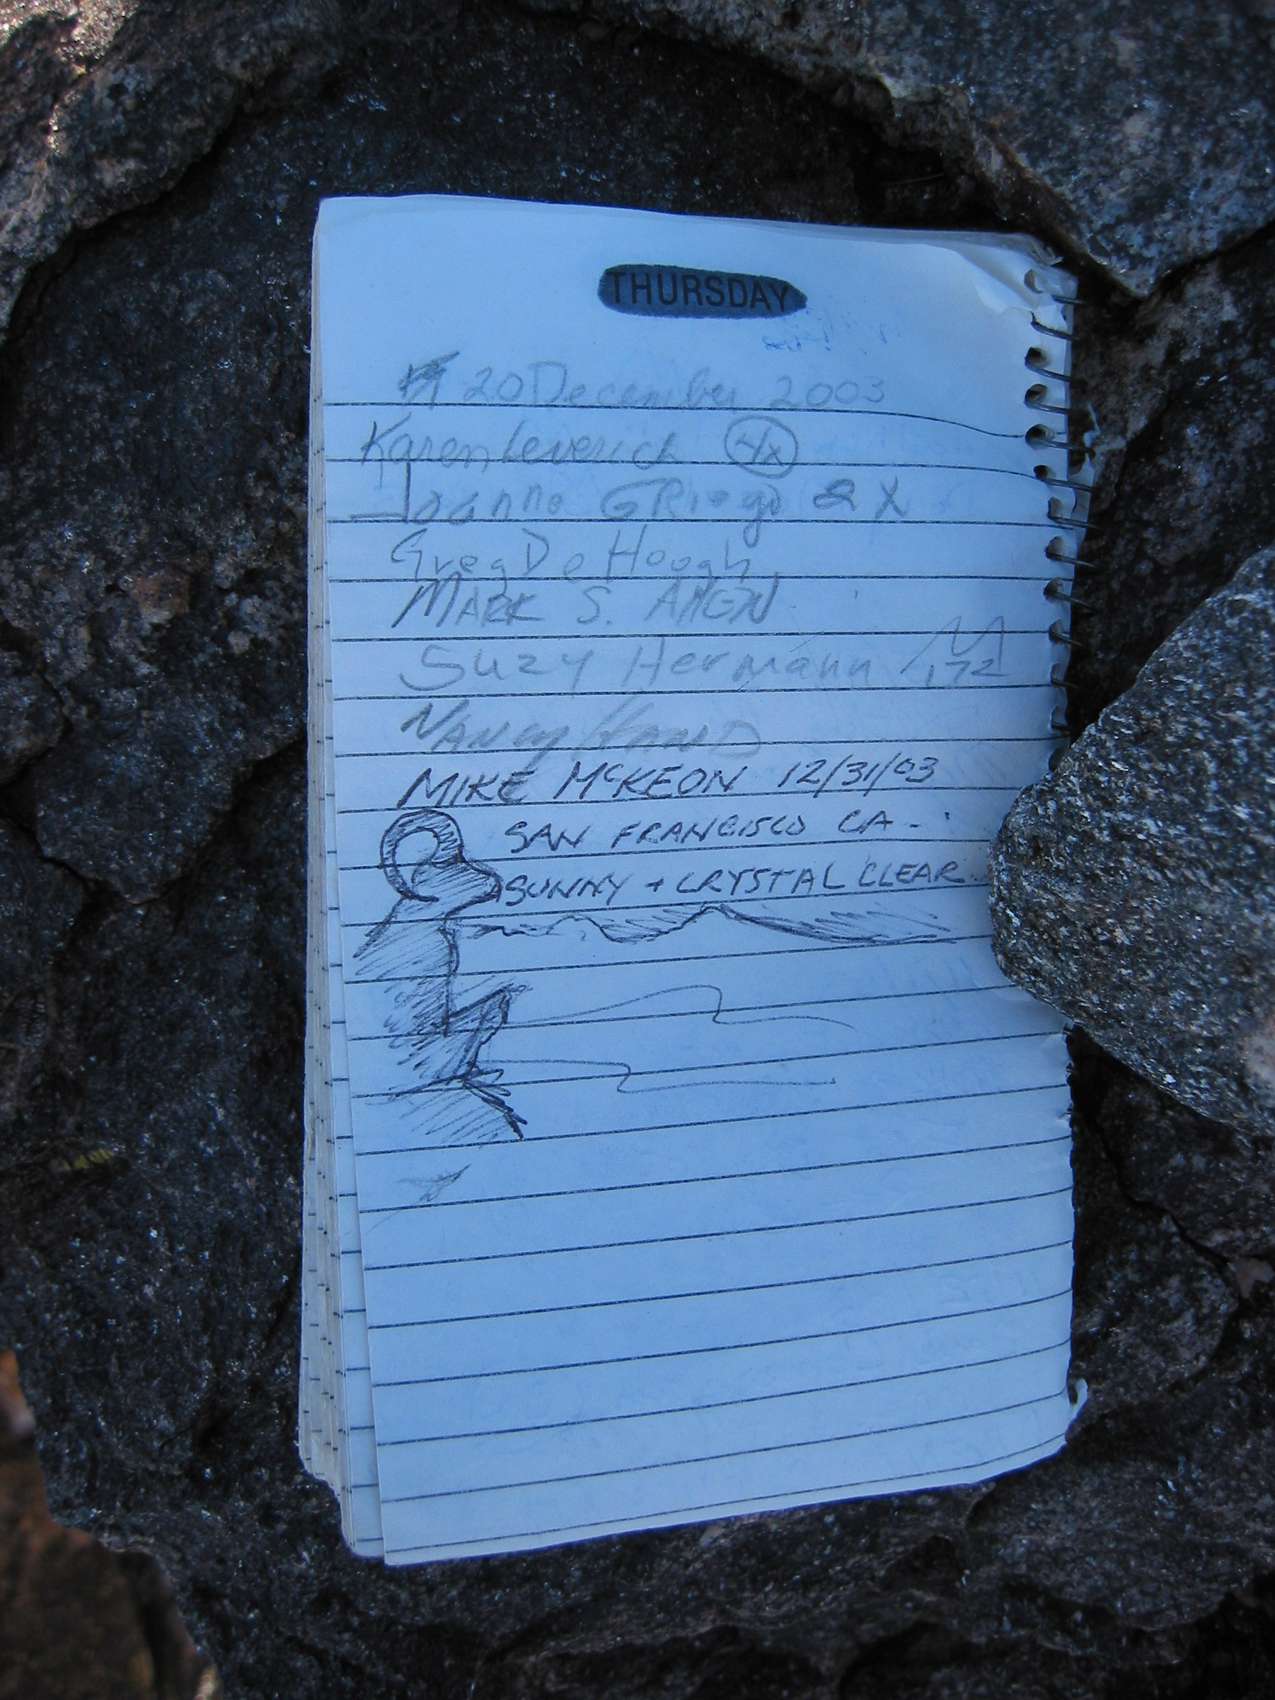 THURSDAY
20 December 2003
Karen Leverich 4x
Joanne GRiego 2X
Greg De Hoogh
MARK S. AMEN
Suzy Hermann 172
NANCY HAND
MIKE McKEON 12/31/03
SAN FRANCISCO CA.
SUNNY + CRYSTAL CLEAR.